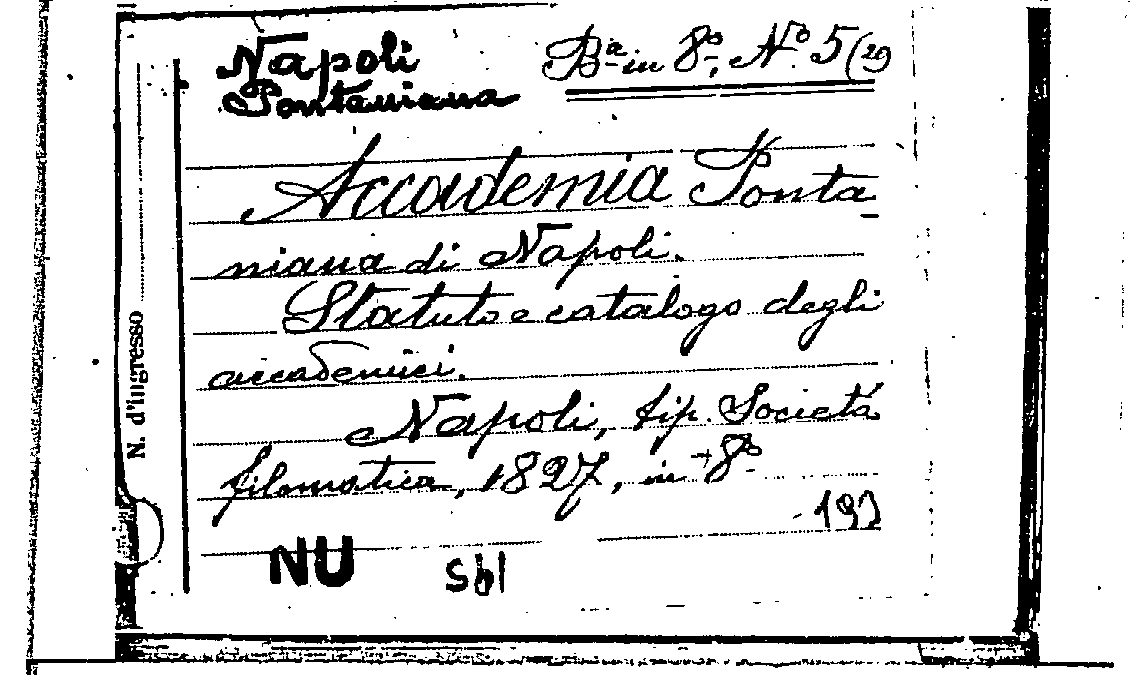 Napoli
Pontaniana
Bª in 8º, Nº 5 (29
Accademia Ponta-
niana di Napoli.
Statuto e catalogo degli
accademici.
Napoli, tip. Società
filomatica, 1827, in +8º
193
NU sbl
N. d'ingresso